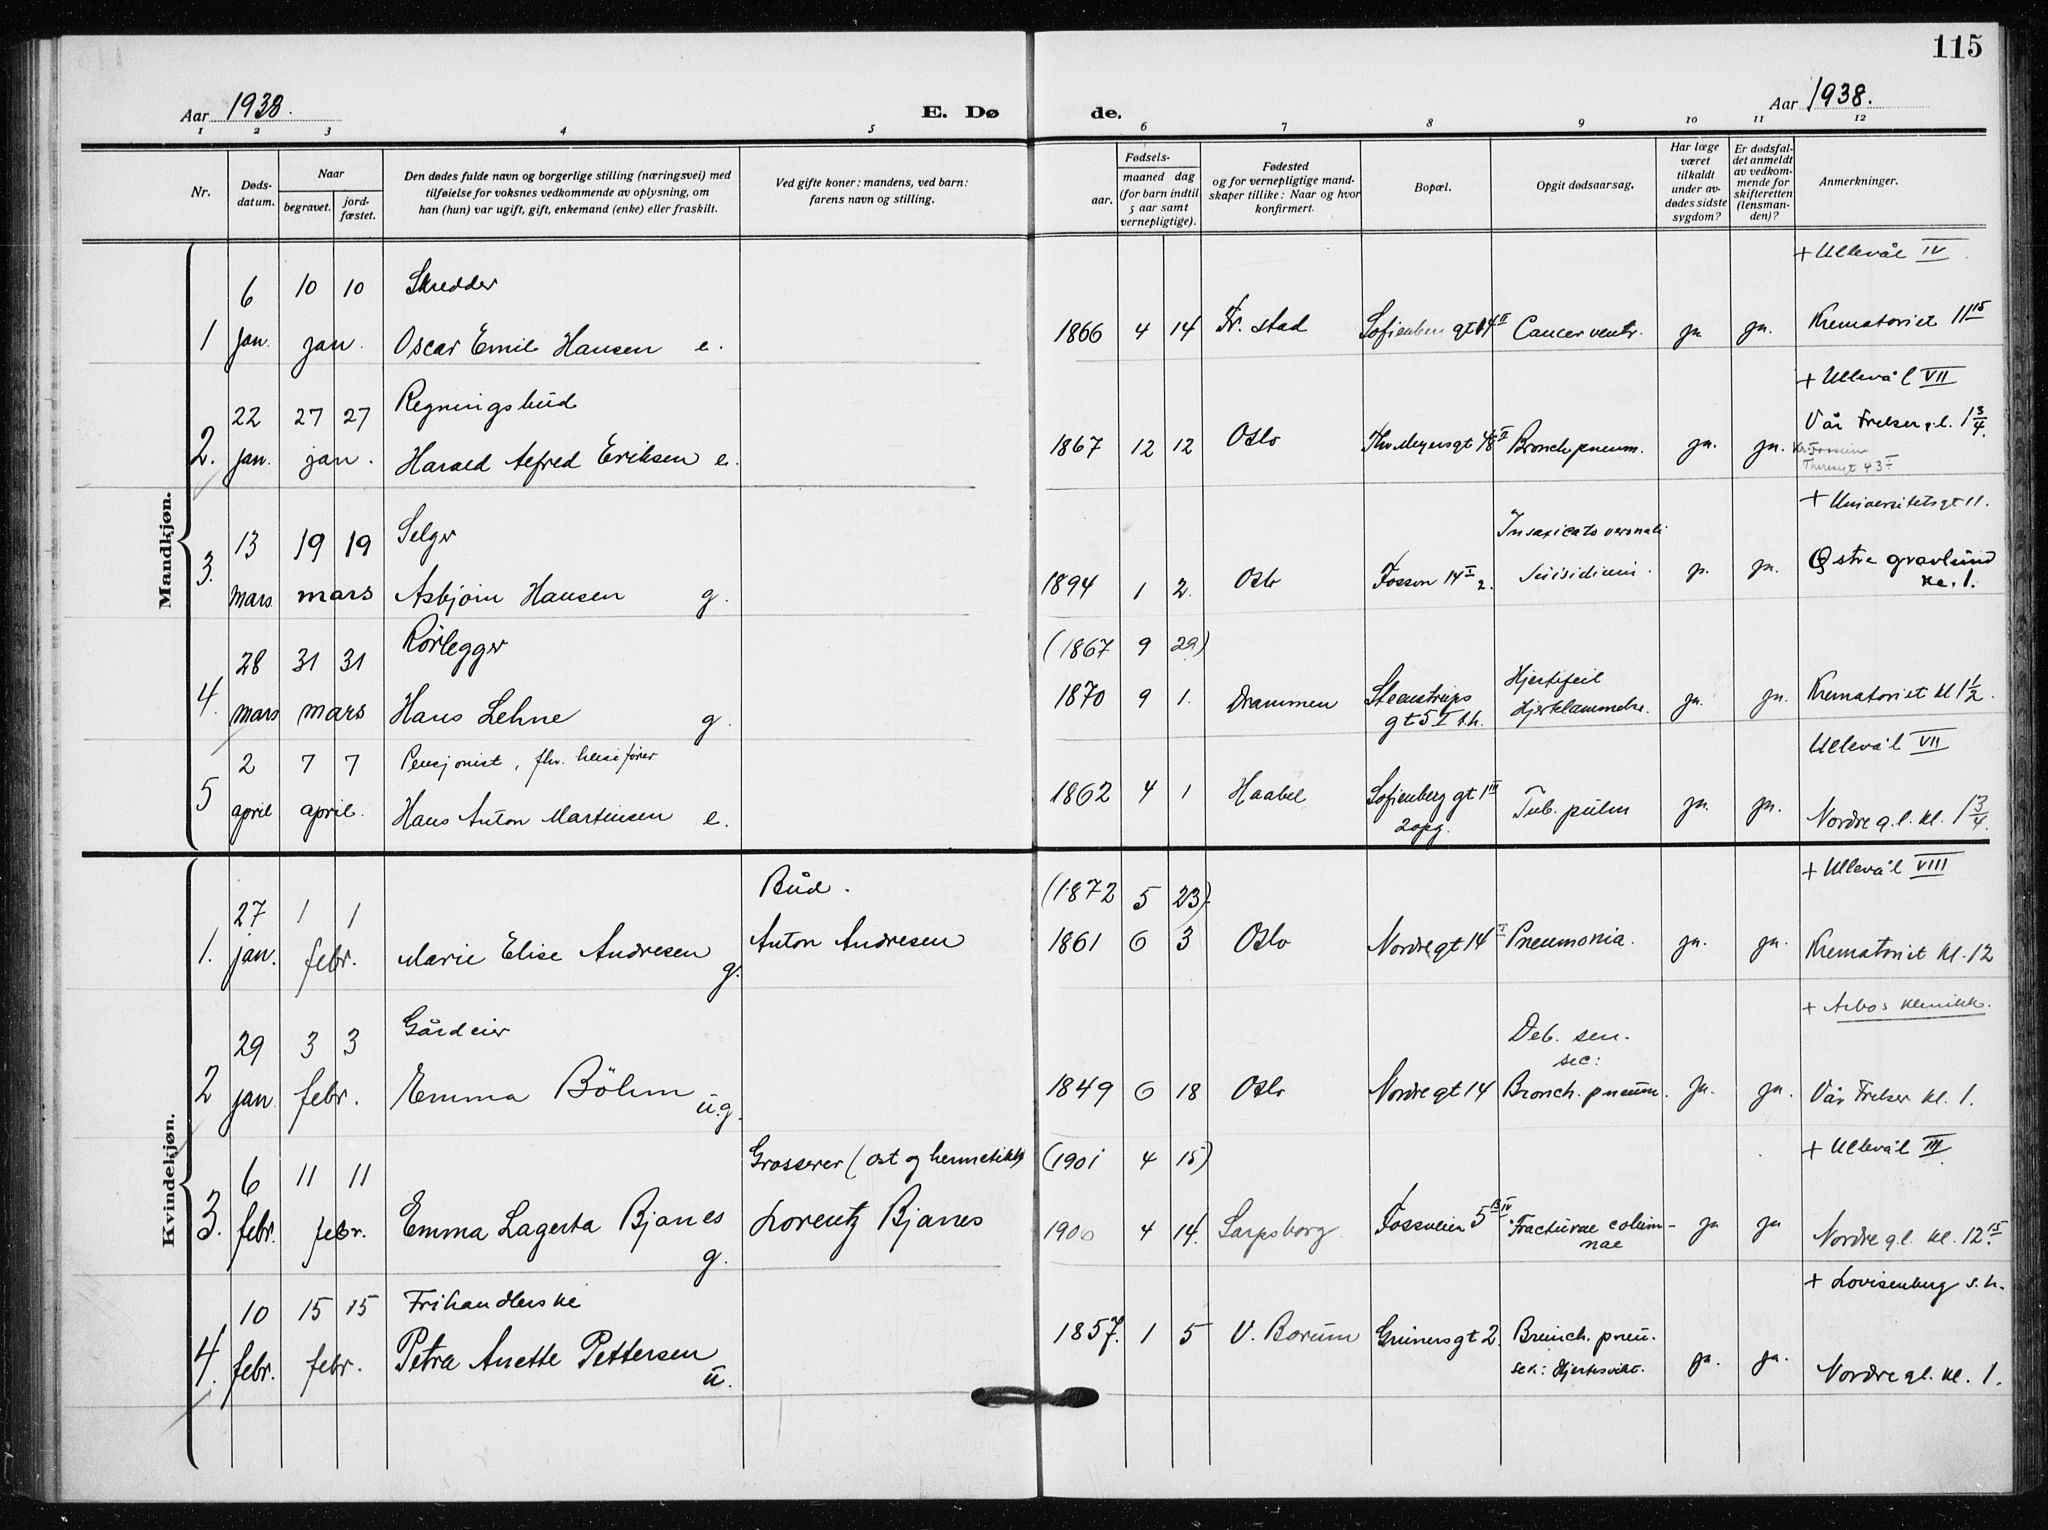 115
Aar 1938.
E. Dø
de.
Aar 1938.
1 2 3 4 5 6 7 8 9 10 11 12
Nr.
Døds-
datum.
Naar
begravet.
jord-
fæstet.
Den dødes fulde navn og borgerlige stilling (næringsvei) med
tilføielse for voksnes vedkommende av oplysning, om
han (hun) var ugift, gift, enkemand (enke) eller fraskilt.
Ved gifte koner: mandens, ved barn:
farens navn og stilling.
Fødsels-
aar.
maaned dag
(for barn indtil
5 aar samt
vernepligtige).
Fødested
og for vernepligtige mand-
skaper tillike: Naar og hvor
konfirmert.
Bopæl.
Opgit dødsaarsag.
Har læge
været
tilkaldt
under av-
dødes sidste
sygdom?
Er dødsfal-
det anmeldt
av vedkom-
mende for
skifteretten
(lensman-
den)?
Anmerkninger.
Mandkjøn.
+ Ullevål IV
6 10 10 Skredder
1 jan. jan. Oscar Emil Hansen e. 1866 4 14 Fr. stad Sofienberg gt 14 II Cancer ventr. ja ja. Krematoriet 11 15
+ Ullevål VII
22 27 27 Regningsbud
2. jan. jan. Harald Alfred Eriksen e. 1867 12 12 Oslo Thv. Meyersgt 48 II Bronch. pneum. ja. ja. Vår Frelser g.l. 1 3/4.
Theresgt 43 I
+ Universitetsgt 11.
13 19 19 Selger
3. mars mars Asbjørn Hansen g. 1894 1 2. Oslo Fossvn 14 I 2. suisidium. ja. Østre gravlund
kl. 1.
28 31 31 Rørlegger (1867 9 29)
4. mars mars Hans Lehne g. 1870 9 1. Drammen Steenstrups
gt 5 I t.h. Hjertefeil
Hjerteklammelse. ja. ja. Krematoriet kl 1 1/2.
Ullevål VII
2 7 7 Pensjonist, fhv. heisefører
5 april april. Hans Anton Martinsen e. 1862 4 1 Haabøl Sofienberg gt 1 III
2 opg. Tub. pulm ja. ja. Nordre g.l. kl. 1 3/4.
Kvindekjøn.
+ Ullevål VIII
27 1 1 Bud. (1872 5 23).
1. jan. febr. Marie Elise Andresen g. Anton Andresen 1861 6 3 Oslo Nordregt 14 I Pneumonia. ja. ja. Krematoriet kl. 12
+ Arbos klinikk.
29 3 3 Gårdeier Deb. sen.
sec:
2 jan febr. Emma Böhm ug. 1849 6 18 Oslo Nordregt 14 Bronch. pneum. ja. ja. Vår Frelser kl. 1.
+ Ullevål III
6 11 11 Grosserer (ost og hermetikk) (1901 4 15)
3. febr. febr. Emma Lagerta Bjanes g. Lorentz Bjanes 1900 4 14. Sarpsborg Fossveien 5 B IV Fracturae colum-
nae ja ja Nordre g.l. kl. 12 15.
+ Lovisenberg s.h.
10 15 15 Frihandlerske
4. febr. febr. Petra Anette Pettersen u. 1857. 1 5 V. Bærum Grünersgt 2. Bronch. pneu.
sek: Hjertesvikt. ja. ja. Nordre g.l. kl. 1.